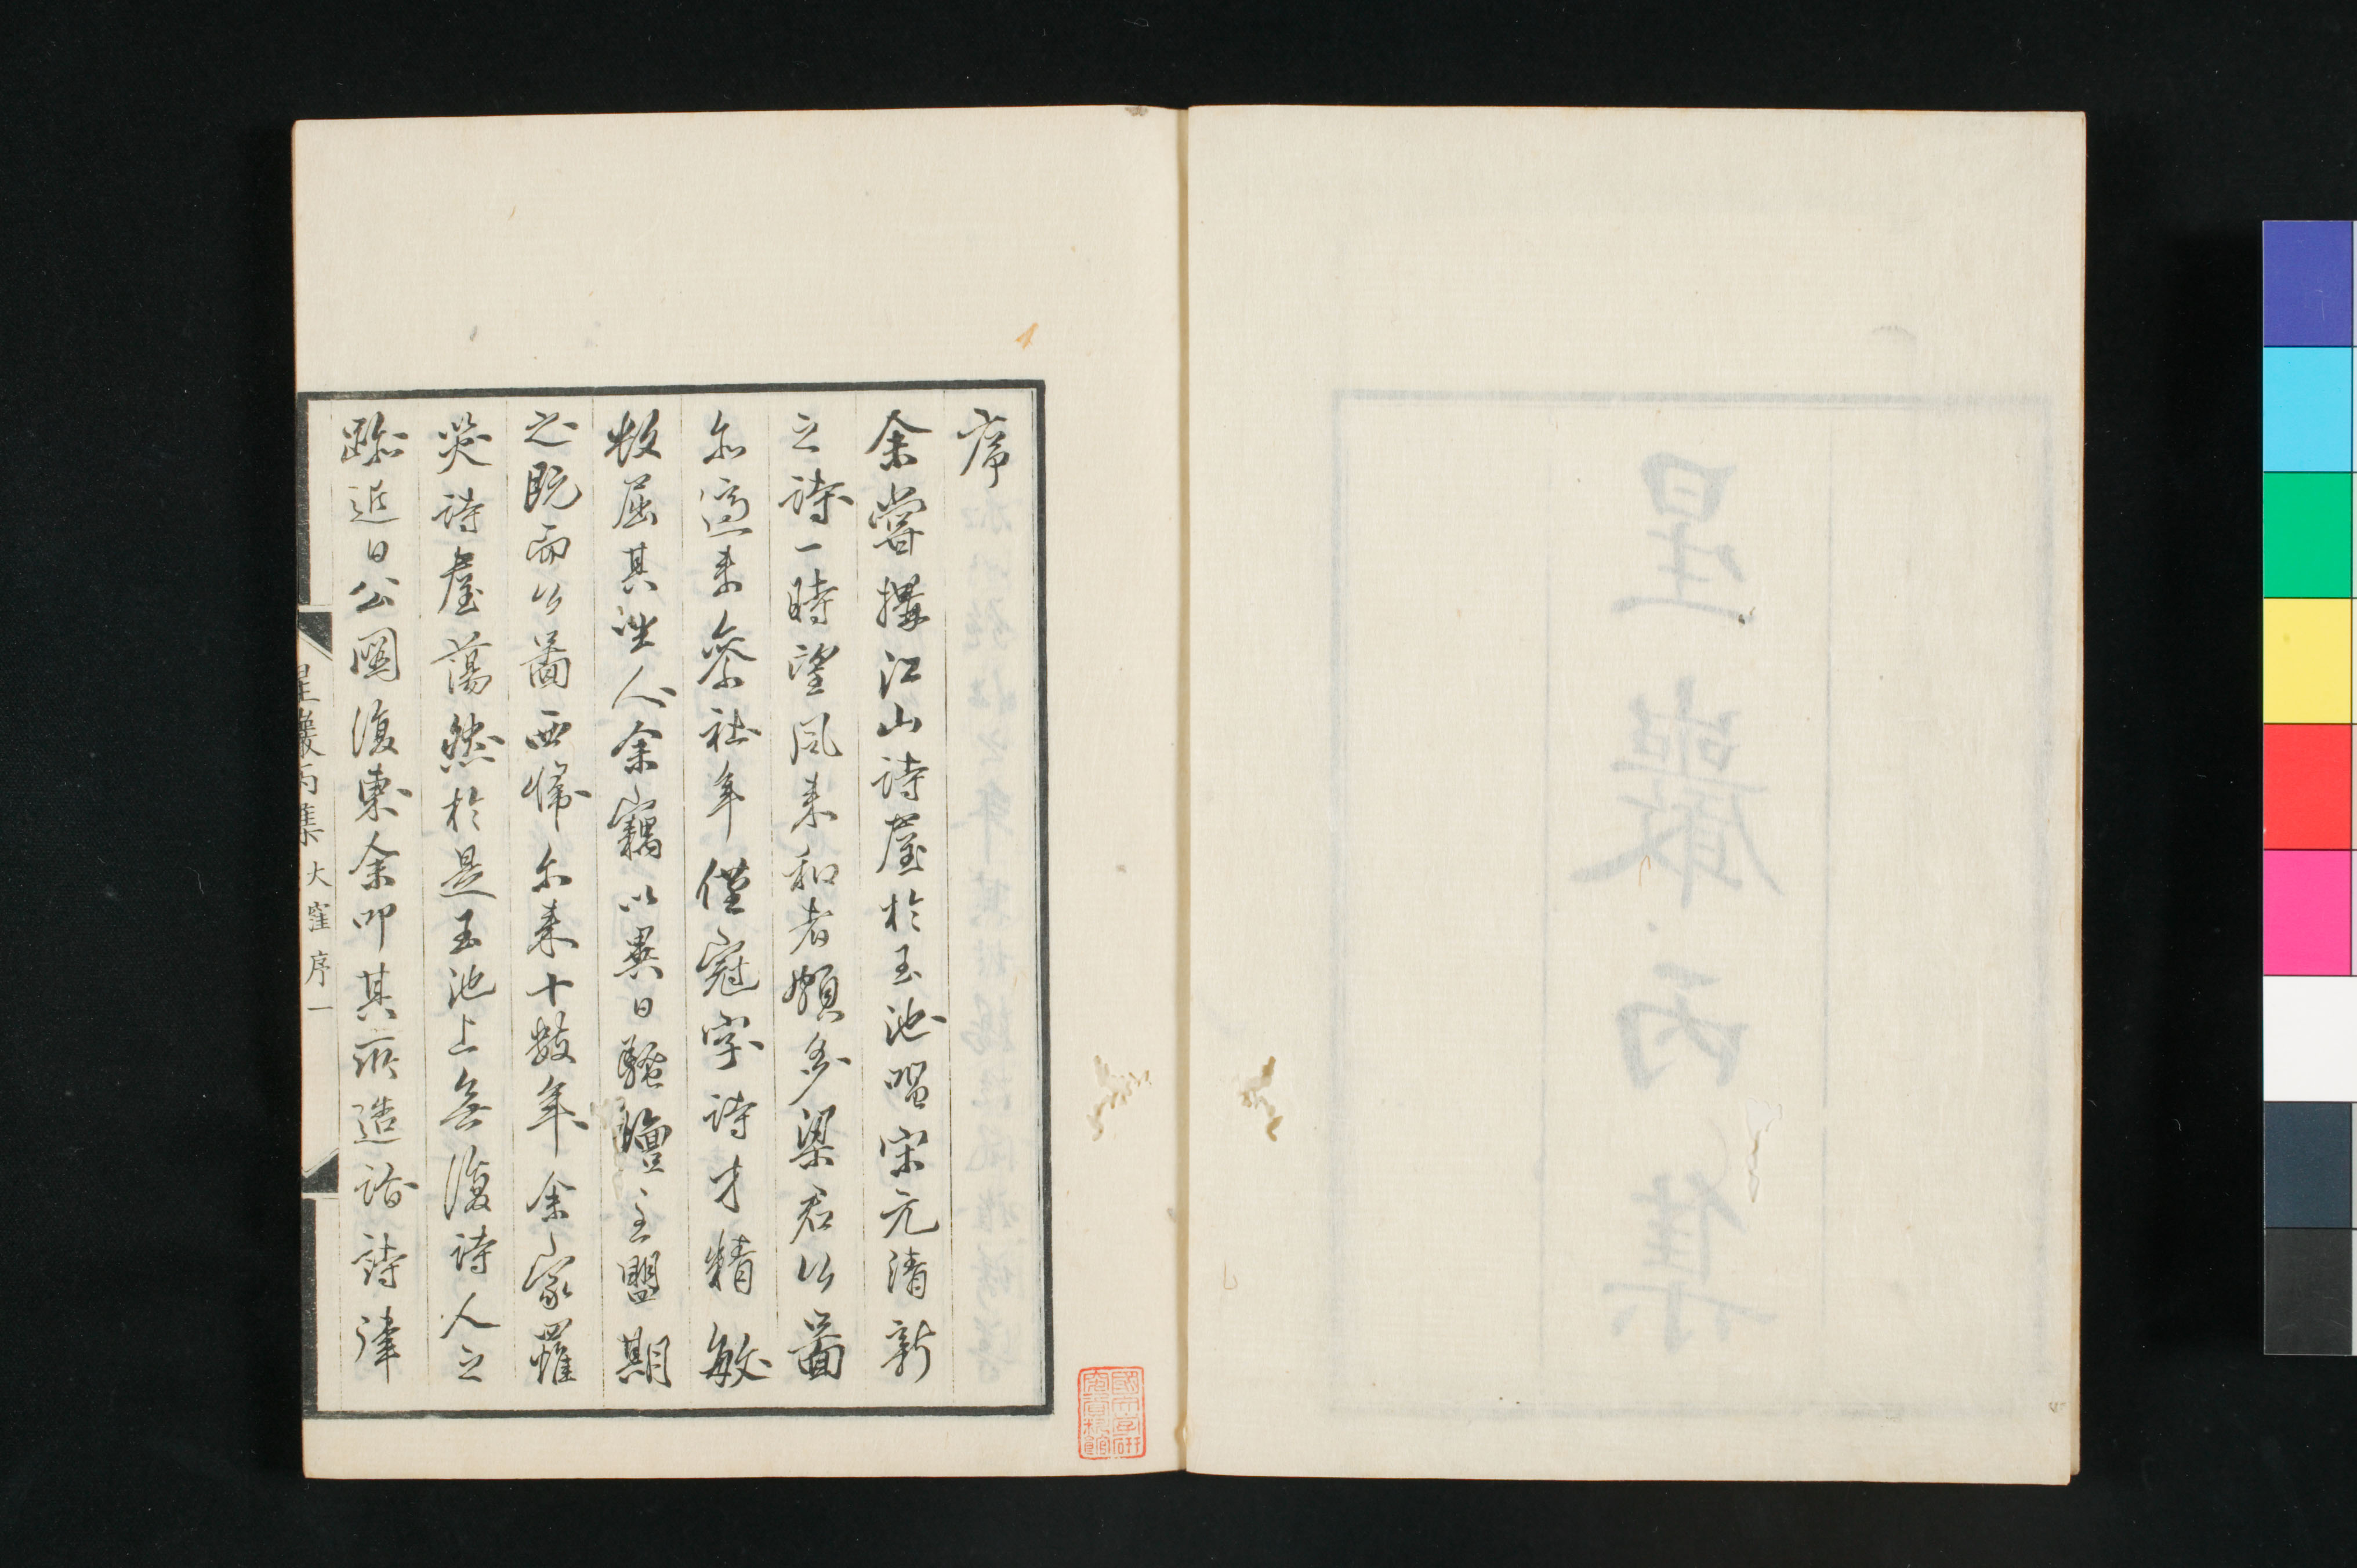 星巖丙集
序
余嘗搆江山詩屋於玉池唱宋元清新
之詩一時望風来和者頗多梁君公圖
亦適来参社年僅冠字詩才精敏
数屈其坐人余竊以異日騒壇主盟期
之既而公圖西帰尓来十数年余家罹
災詩屋蕩然於是玉池上無復詩人之
跡近日公圖復東余叩其所造詣詩律
星巖丙集 大窪序一